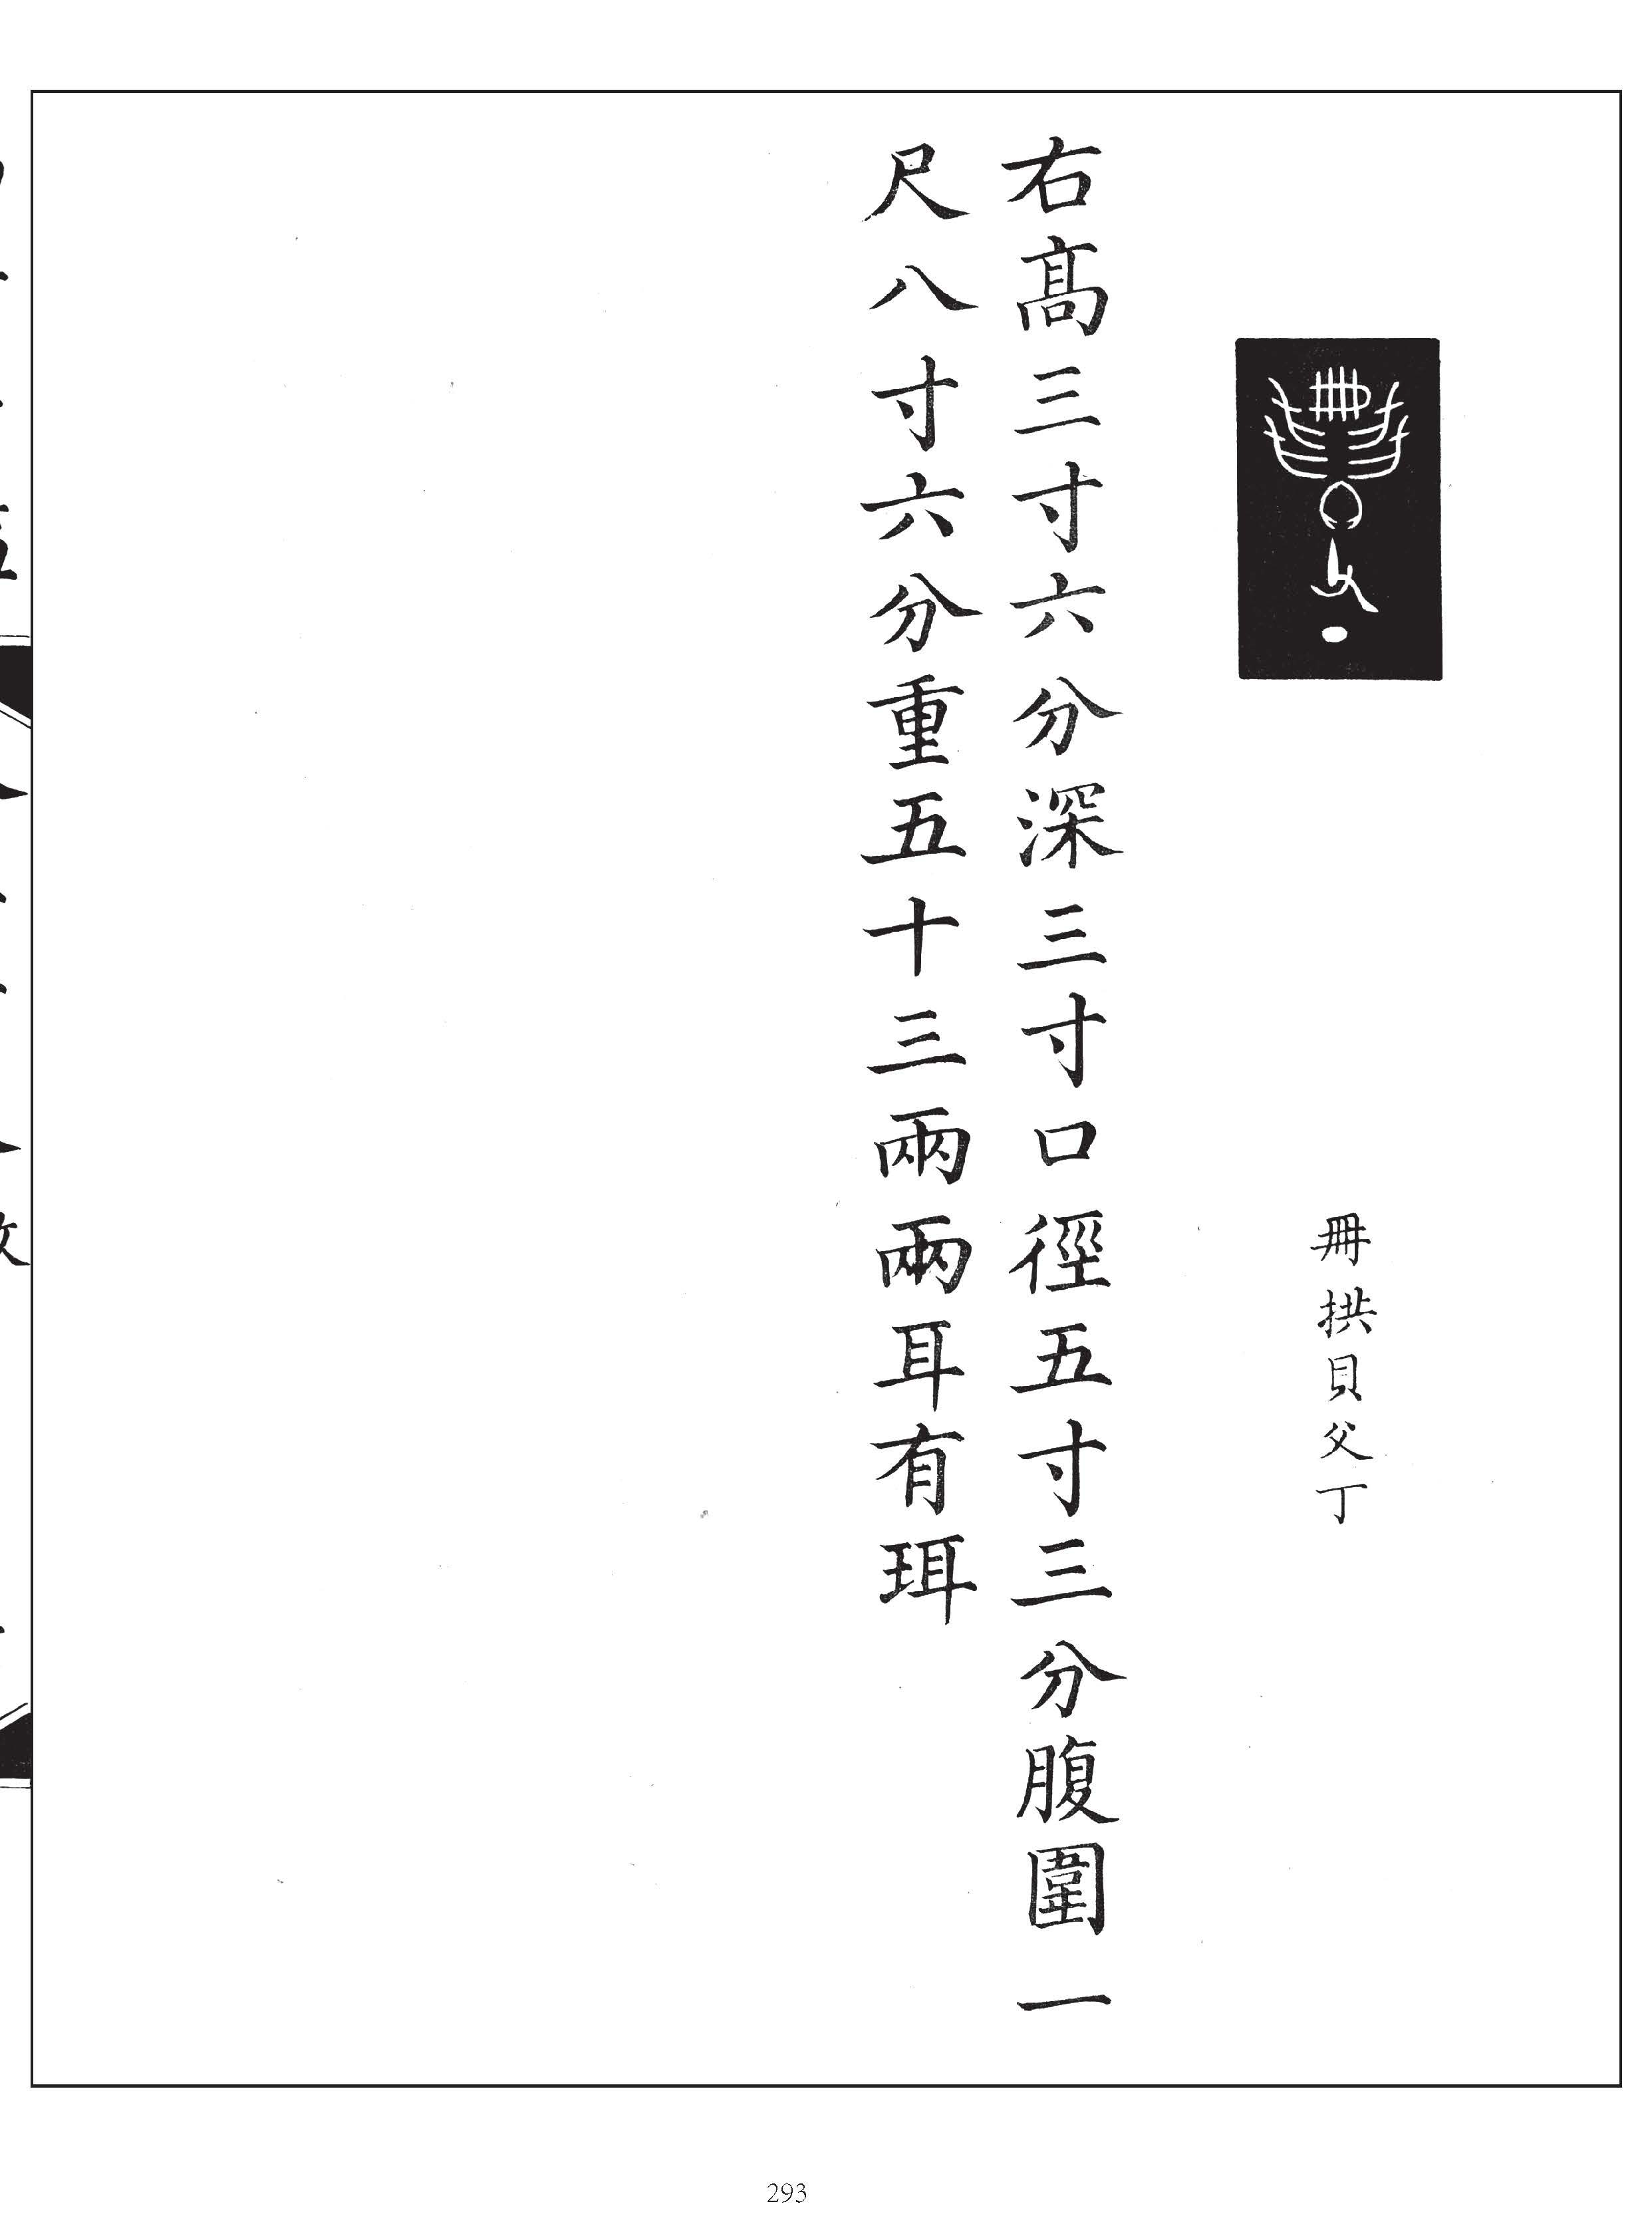 冊拱貝父丁
右高三寸六分深三寸口徑五寸三分腹圍一
尺八寸六分重五十三兩兩耳有珥
293